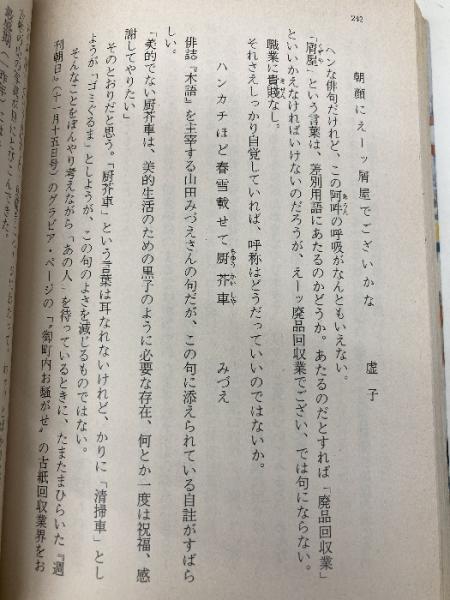 242
朝顔にえーッ屑屋でございかな　虚子
ヘンな俳句だけれど、この阿吽の呼吸がなんともいえない。
「屑屋」という言葉は、差別用語にあたるのかどうか。あたるのだとすれば「廃品回収業」
といいかえなければいけないのだろうが、えーッ廃品回収業でござい、では句にならない。
職業に貴賤なし。
それさえしっかり自覚していれば、呼称はどうだっていいのではないか。
ハンカチほど春雪載せて厨芥車　みづえ
俳誌『木語』を主宰する山田みづえさんの句だが、この句に添えられている自註がすばら
しい。
「美的でない厨芥車は、美的生活のための黒子のように必要な存在、何とか一度は祝福、感
謝してやりたい」
そのとおりだと思う。「厨芥車」という言葉は耳なれないけれど、かりに「清掃車」とし
ようが「ゴミぐるま」としようが、この句のよさを減じるものではない。
そんなことをぼんやり考えながら「あの人」を待っているときに、たまたまひらいた『週
刊朝日』（十一月十五日号）のグラビア・ページの「〝御町内お騒がせ〟の古紙回収業界をお